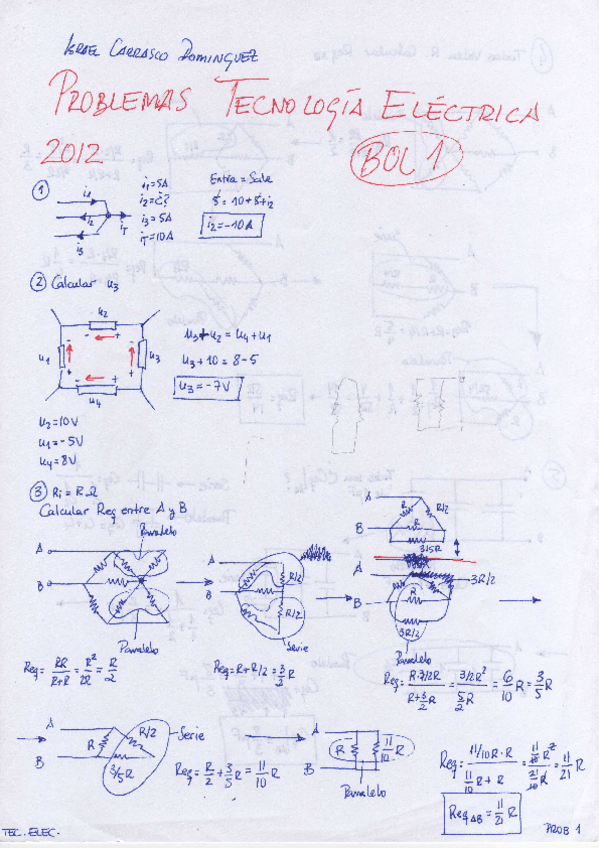 ISRAEL CARRASCO DOMINGUEZ
PROBLEMAS TECNOLOGÍA ELÉCTRICA
2012 BOL 1
① i1 i2 i3 iT
i1=5A
i2=¿?
i3=5A
iT=10A
Entra = Sale
5 = 10+5+i2
i2=-10A
② Calcular u3
u2
u1 u3
u4
u3+u2 = u4+u1
u3+10 = 8-5
u3=-7V
u2=10V
u1=-5V
u4=8V
③ Ri = R Ω
Calcular Req entre A y B
Paralelo
A
B
Paralelo
Req = RR/R+R = R²/2R = R/2
A
B
R/2
R/2
Serie
Req=R+R/2=3/2 R
A
B
R R/2
3/5R
A
B
3R/2
R
3R/2
Paralelo
Req= R·3/2R/R+3/2R = 3/2R²/5/2R = 6/10 R = 3/5 R
A
B
R R/2
3/5R
Serie
Req= R/2 + 3/5 R = 11/10 R
A
B
R 11/10 R
Paralelo
Req= 11/10 R·R/11/10 R + R = 11/10 R²/21/10 R = 11/21 R
Req AB = 11/21 R
TEC. ELEC.
PROB 1